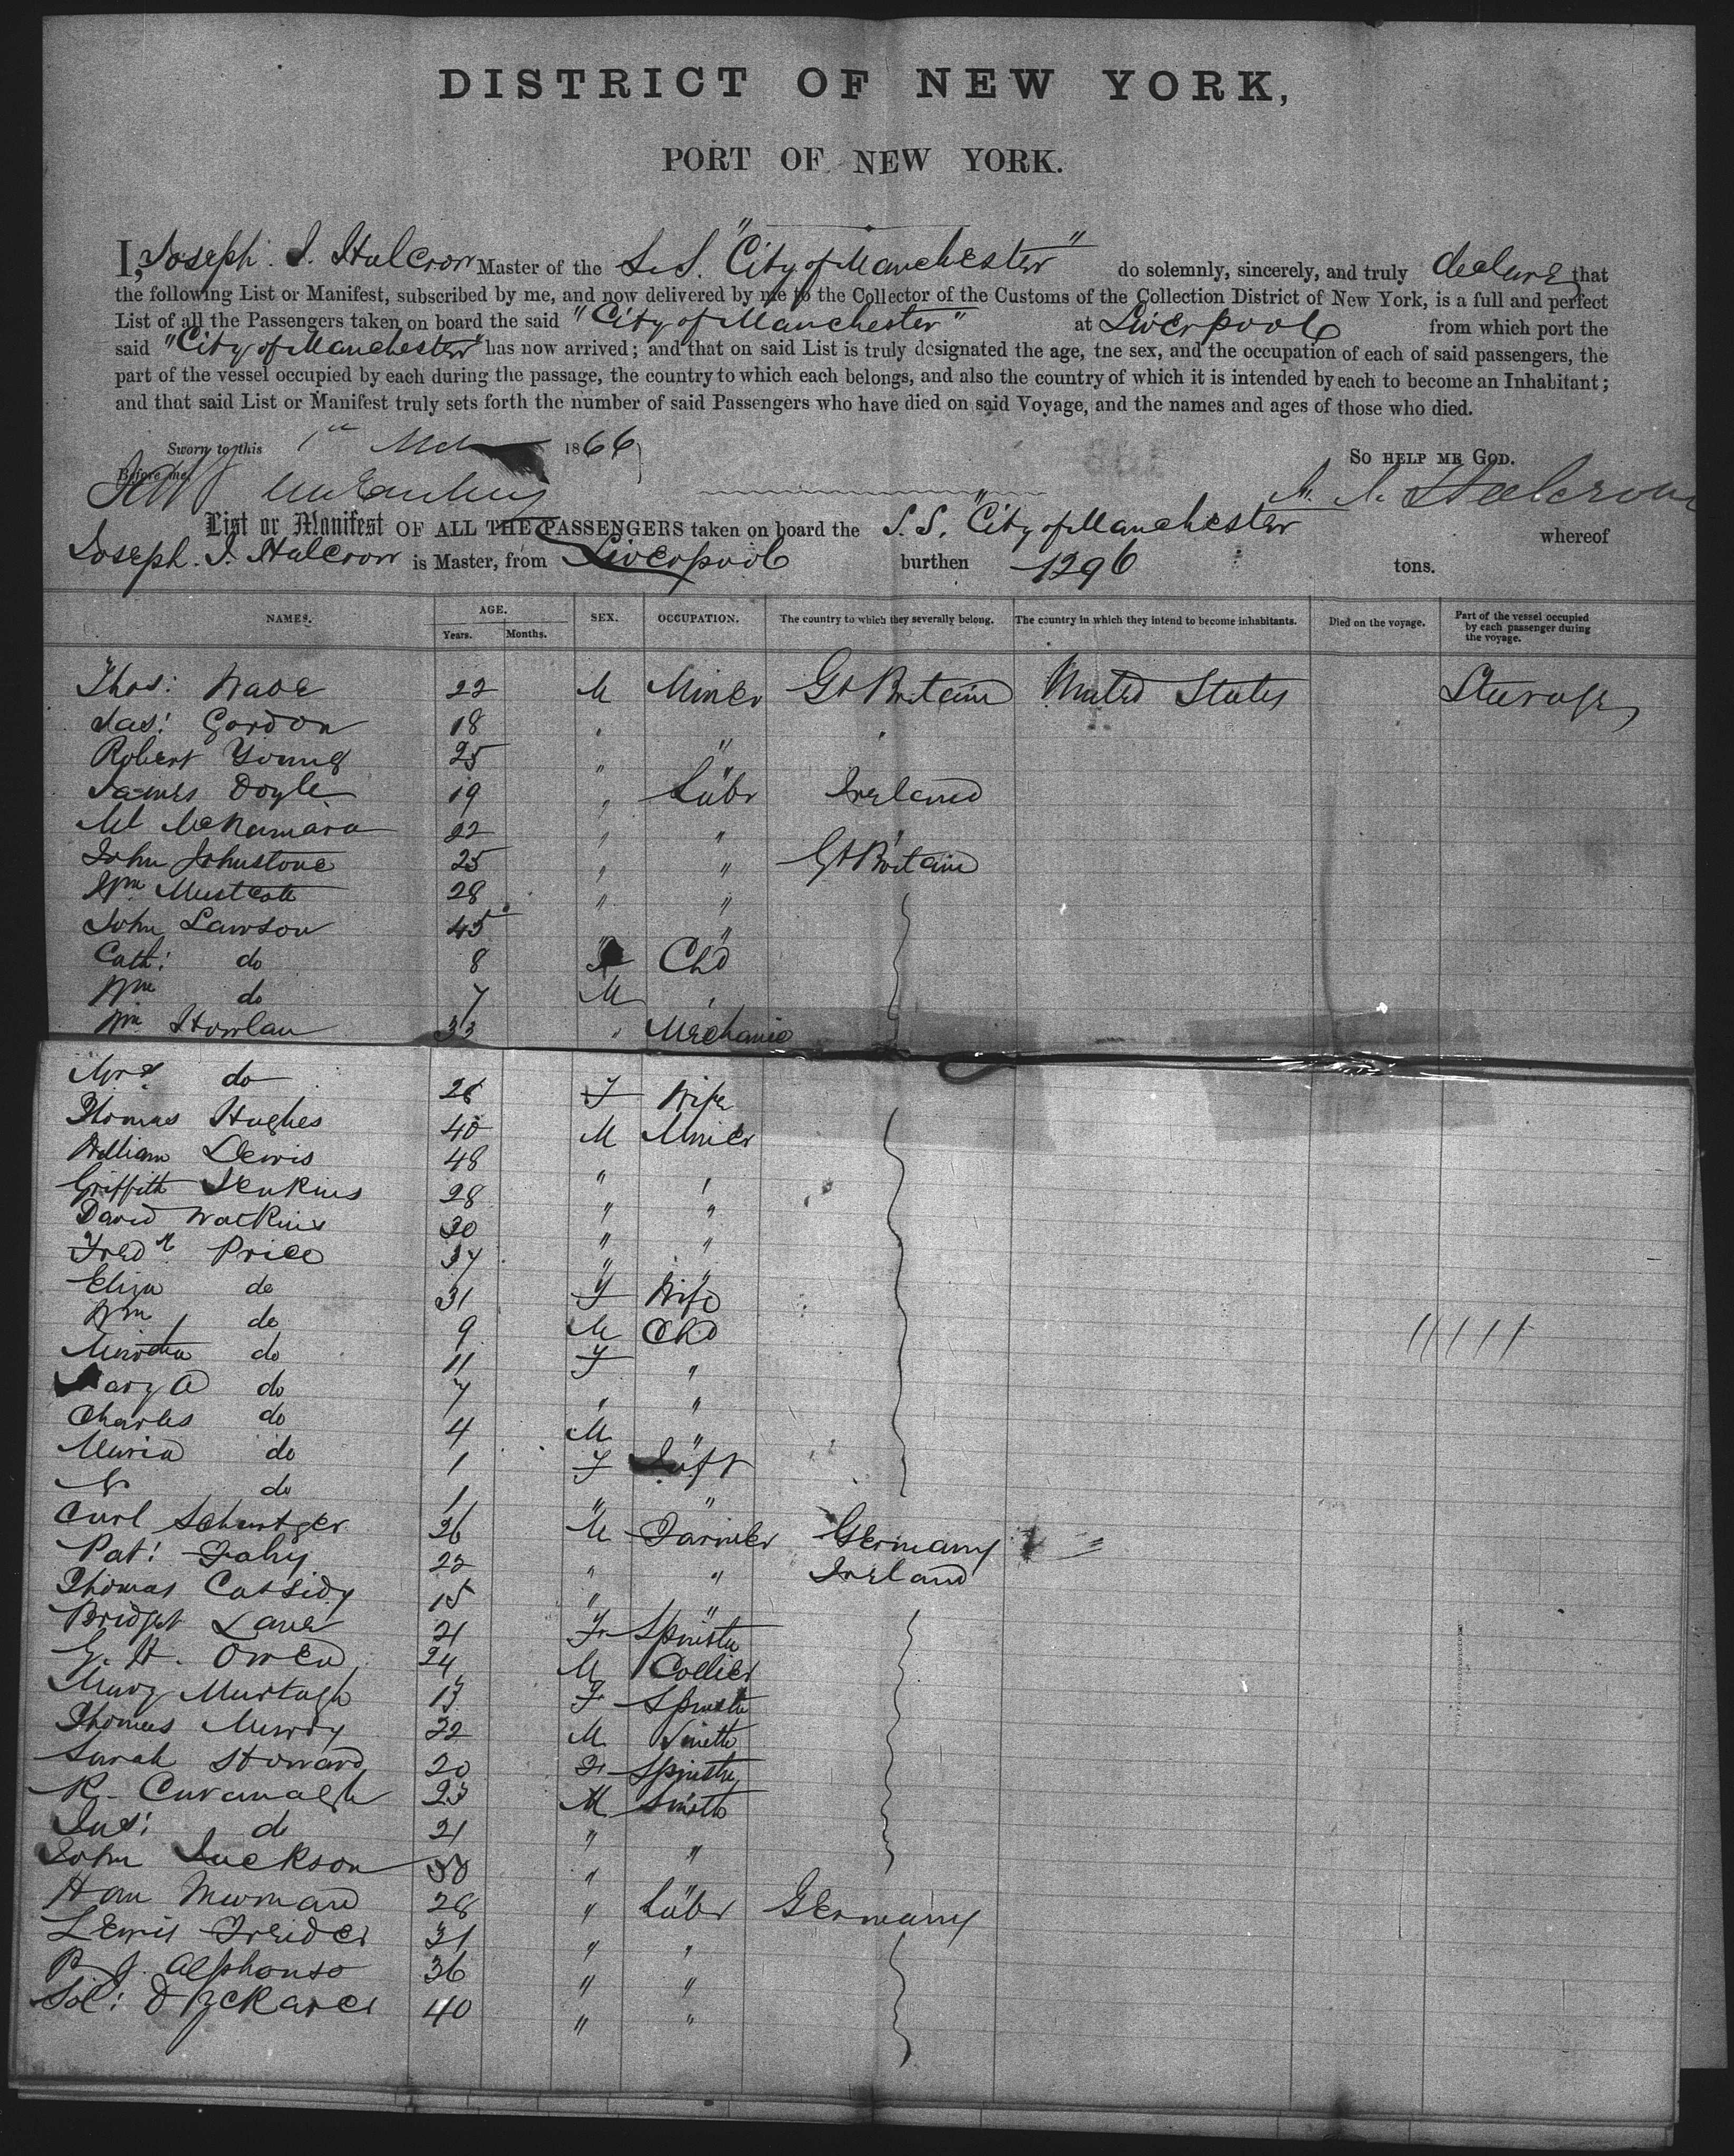 DISTRICT OF NEW YORK,
PORT OF NEW YORK.
I, Joseph. S. Halcrow Master of the S.S. "City of Manchester" do solemnly, sincerely, and truly declare that
the following List or Manifest, subscribed by me, and now delivered by me to the Collector of the Customs of the Collection District of New York, is a full and perfect
List of all the Passengers taken on board the said "City of Manchester" at Liverpool from which port the
said "City of Manchester" has now arrived; and that on said List is truly designated the age, the sex, and the occupation of each of said passengers, the
part of the vessel occupied by each during the passage, the country to which each belongs, and also the country of which it is intended by each to become an Inhabitant;
and that said List or Manifest truly sets forth the number of said Passengers who have died on said Voyage, and the names and ages of those who died.
Sworn to this 1st Mch 1866 So help me God.
Before me
List or Manifest OF ALL THE PASSENGERS taken on board the S.S. "City of Manchester whereof
Joseph. S. Halcrow is Master, from Liverpool burthen 1296 tons.
NAMES. AGE. Years. Months. SEX. OCCUPATION. The country to which they severally belong. The country in which they intend to become inhabitants. Died on the voyage. Part of the vessel occupied by each passenger during the voyage.
Thos: Wade 22 M Miner Gt Britain United States Steerage
Jas: Gordon 18 " " "
Robert Young 25 " "
James Doyle 19 " Labr Ireland
Ml McNamara 22 " " "
John Johnstone 25 " " Gt Britain
Wm 28 " "
John Lawson 45 " "
Cath: do 8 F Chd
Wm do 7 M "
Wm Howlan 33 " Mechanic
Mrs do 28 F Wife
Thomas Hughes 40 M Miner
William Lewis 48 " "
Griffith Jenkins 28 " "
David Watkins 30 " "
Fredk Price 37 " "
Eliza do 31 F Wife
Wm do 9 M Chd
Martha do 11 F "
Mary A do 7 " "
Charles do 4 M "
Maria do 1 F Inft
N do 1 " "
Carl Schartger 26 M Farmer Germany
Pat: Fahy 22 " " Ireland
Thomas Cassidy 15 " "
Bridget Lane 21 F Spinstr
G. H. Owen 24 M Collier
Mary Murtagh 17 F Spinstr
Thomas 22 M Smith
Sarah Howard 20 F Spinstr
R. Cavanagh 23 M Smith
Jas: do 21 " "
John Jackson 50 " "
Han Numan 28 " Labr Germany
Lewis Freider 31 " "
P. J. Alphonso 36 " "
Sol: 40 " "